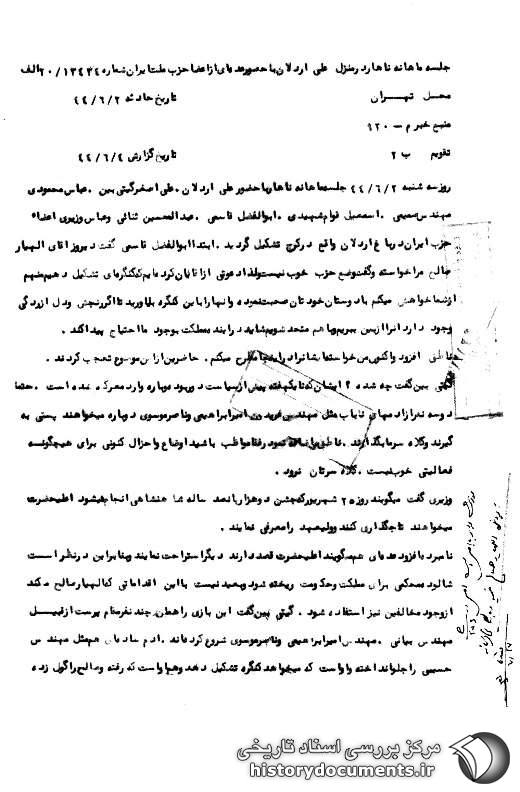 جلسه ماهانه ناهار در منزل علی اردلان با حضور عده‌ای از اعضا حزب ملت ایران شماره ۲۰/۱۳۴۳۴ الف
محل تهران تاریخ حادثه ۴۴/۶/۲
منبع خبر م – ۹۲۰
تقویم ب ۲ تاریخ گزارش ۴۴/۶/۴
روز سه شنبه ۴۴/۶/۲ جلسه ماهانه ناهار با حضور علی اردلان . علی اصغر گیتی بین . عباس محمودی
مهندس سمیعی . اسمعیل قوام شهیدی . ابوالفضل قاسمی . عبدالحسین ثنائی وعباس وزیری اعضاء
حزب ایران در باغ اردلان واقع در کرج تشکیل گردید . ابتدا ابوالفضل قاسمی گفت دیروز آقای الهیار
صالح مرا خواسته وگفت وضع حزب خوب نیست ولذا دعوتی از آقایان کرده‌ایم که کنگره‌ای تشکیل دهیم منهم
از شما خواهش میکنم با دوستان خودتان صحبت نموده وآنها را با این کنگره بیاورید تا اگر رنجش ودل آزردگی
وجود دارد آنرا از بین ببریم وبا هم متحد شویم شاید در آینده مملکت بوجود ما احتیاج پیدا کند .
قاسمی افزود واکنون می‌خواستم با شما در اینجا مطرح میکنم . حاضرین از این موضوع تعجب کردند .
گیتی بین گفت چه شده ایشان که تا یکهفته پیش از سیاست دور بود دوباره وارد معرکه شده است . حتما
دو سه نفر از آدمهای نایاب مثل مهندس امیرابراهیمی وناصر موسوی دوباره میخواهند پستی به
گیرند وکلاه سرما بگذارند . قاسمی اضافه نمود رفقا مواظب باشید اوضاع واحوال کنونی برای هیچگونه
فعالیتی خوب نیست . کلاه سرتان نرود .
وزیری گفت میگویند روز ۲۵ شهریور که جشن دو هزار پانصد ساله شاهنشاهی انجام میشود اعلیحضرت
میخواهند تاجگذاری کنند وولیعهد را معرفی نمایند .
نامبرده افزود عده‌ای هم میگویند اعلیحضرت قصد دارند دیگر استراحت نمایند وبنابراین در نظر است
شالوده محکمی برای مملکت وحکومت ریخته شود وبعید نیست با این اقداماتی که الهیار صالح میکند
از وجود مخالفین نیز استفاده شود . گیتی بین گفت این بازی را همان چند نفر مقام پرست از قبیل
مهندس بیانی . مهندس امیرابراهیمی وناصر موسوی شروع کرده‌اند . آدم ساده‌ای هم مثل مهندس
حسیبی را جلو انداخته واو است که میخواهد کنگره تشکیل دهد وهم او است که رفته وصالح را گول زده
مرکز بررسی اسناد تاریخی
historydocuments.ir